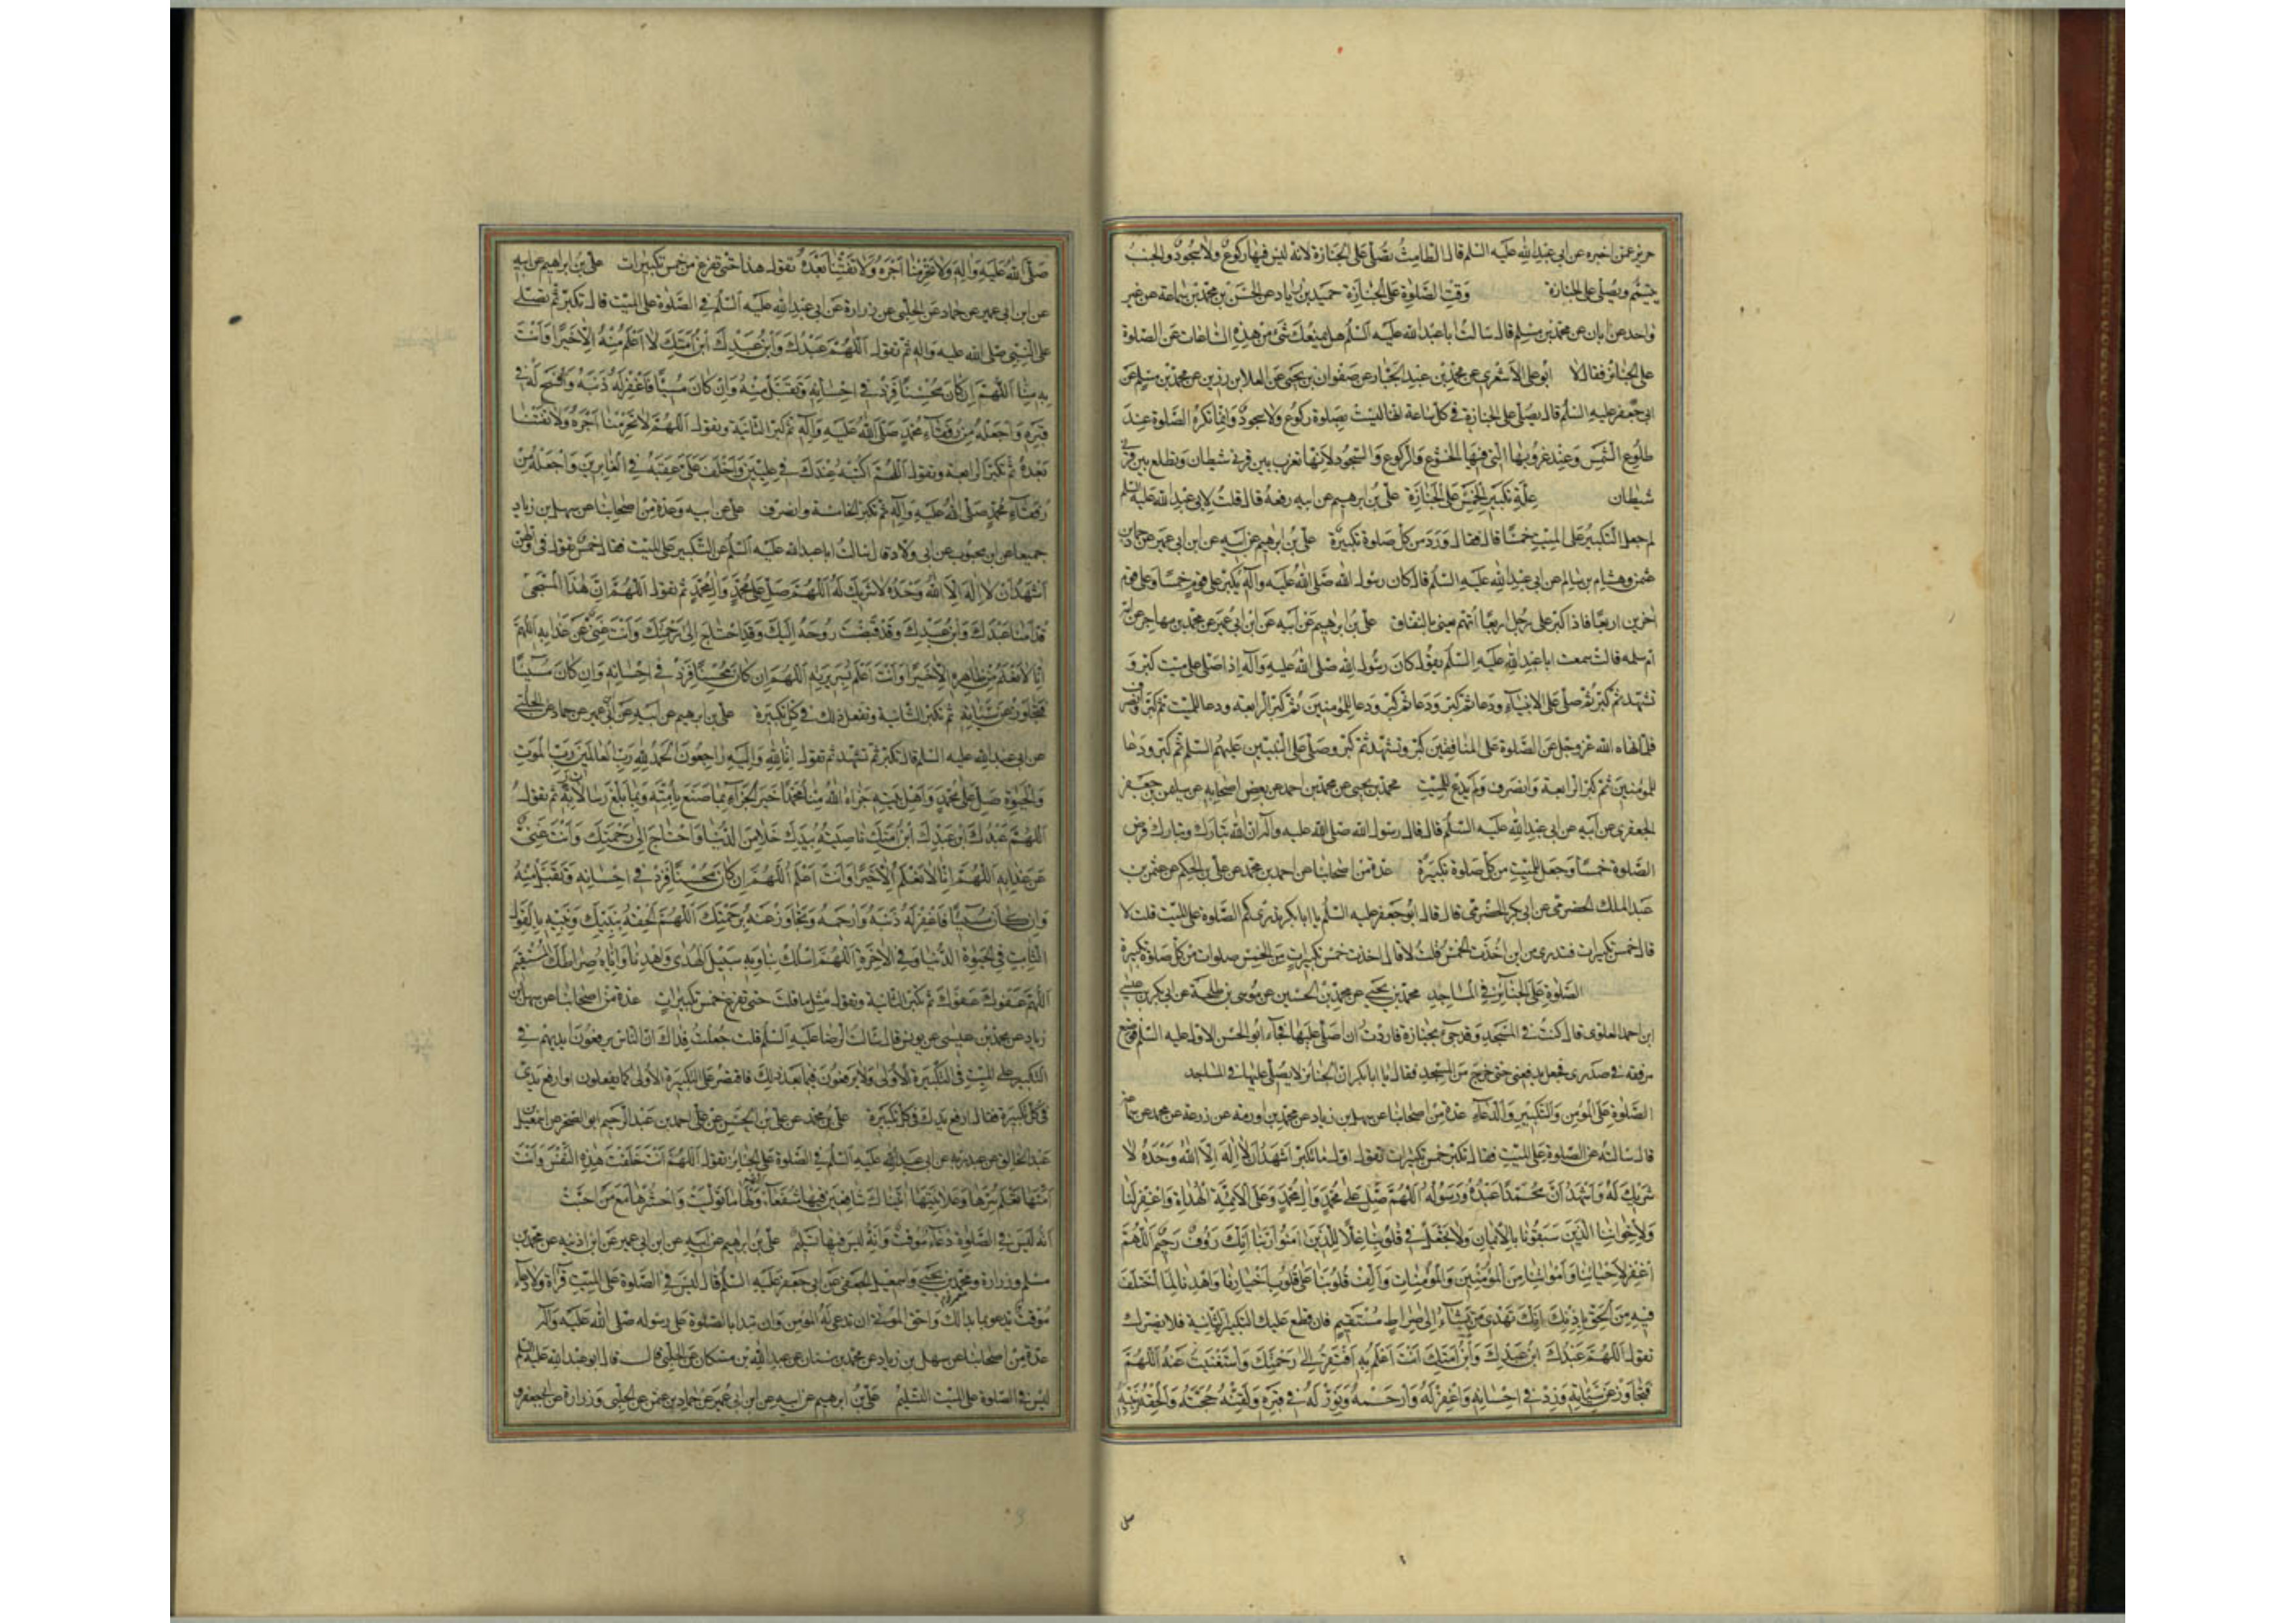 حريز عمن اخبره عن ابى عبد الله عليه السلم قال الطامث تصلى على الجنازة لانه ليس فيها ركوع ولا سجود والجنب
يتيمم ويصلى على الجنازة وقت الصلوة على الجنازة حميد بن زياد عن الحسن بن محمد بن سماعة عن غير
واحد عن ابان عن محمد بن مسلم قال سالت ابا عبد الله عليه السلم هل يمنعك شئ من هذه الساعات عن الصلوة
على الجنائز فقال لا ابو على الاشعرى عن محمد بن عبد الجبار عن صفوان بن يحيى عن العلا بن رزين عن محمد بن مسلم عن
ابى جعفر عليه السلم قال يصلى على الجنازة فى كل ساعة انها ليست بصلوة ركوع ولا سجود وانما تكره الصلوة عند
طلوع الشمس وعند غروبها التى فيها الخشوع والركوع والسجود لانها تغرب بين قرنى شيطان وتطلع بين قرنى
شيطان علة تكبير الخمس على الجنازة على بن ابرهيم عن ابيه رفعه قال قلت لابى عبد الله عليه السلم
لم جعل التكبير على الميت خمسا قال فقال ورد من كل صلوة تكبيرة على بن ابرهيم عن ابيه عن ابن ابى عمير عن حماد بن
عثمن وهشام بن سالم عن ابى عبد الله عليه السلم قال كان رسول الله صلى الله عليه وآله يكبر على قوم خمسا وعلى قوم
اخرين اربعا فاذا كبر على رجل اربعا اتهم يعنى بالنفاق على بن ابرهيم عن ابيه عن ابن ابى عمير عن محمد بن مهاجر عن امه
ام سلمه قالت سمعت ابا عبد الله عليه السلم يقول كان رسول الله صلى الله عليه وآله اذا صلى على ميت كبر و
تشهد ثم كبر ثم صلى على الانبياء ودعا ثم كبر ودعا للمؤمنين ثم كبر الرابعة ودعا للميت ثم كبر وانصرف
فلما نهاه الله عز وجل عن الصلوة على المنافقين كبر وتشهد ثم كبر وصلى على النبيين عليهم السلم ثم كبر ودعا
للمؤمنين ثم كبر الرابعة وانصرف ولم يدع للميت محمد بن يحيى عن محمد بن احمد عن بعض اصحابه عن سليمن بن جعفر
الجعفرى عن ابيه عن ابى عبد الله عليه السلم قال قال رسول الله صلى الله عليه وآله ان الله تبارك وتبارك فرض
الصلوة خمسا وجعل للميت من كل صلوة تكبيرة عدة من اصحابنا عن احمد بن محمد عن على بن الحكم عن عثمن بن
عبد الملك الحضرمى عن ابى بكر الحضرمى قال قال ابو جعفر عليه السلم يا ابا بكر تدرى كم الصلوة على الميت قلت لا
قال خمس تكبيرات فتدرى من اين اخذت الخمس قلت لا قال اخذت خمس تكبيرات من الخمس صلوات من كل صلوة تكبيرة
الصلوة على الجنائز فى المساجد محمد بن يحيى عن محمد بن الحسين عن موسى بن طلحة عن ابى بكر بن عيسى
ابن احمد العلوى قال كنت فى المسجد وقد جئ بجنازة فاردت ان اصلى عليها فجاء ابو الحسن الاول عليه السلم فوضع
مرفقه فى صدرى فجعل يدفعنى حتى خرج من المسجد فقال يا ابا بكر ان الجنائز لا يصلى عليها فى المساجد
الصلوة على المؤمن والتكبير والدعاء عدة من اصحابنا عن سهل بن زياد عن محمد بن اورمه عن زرعة عن محمد عن سماعة
قال سالته عن الصلوة على الميت فقال تكبر خمس تكبيرات تقول اول ما تكبر اشهد ان لا اله الا الله وحده لا
شريك له واشهد ان محمدا عبده ورسوله اللهم صل على محمد وال محمد وعلى الائمة الهداة واغفر لنا
ولاخواننا الذين سبقونا بالايمان ولا تجعل فى قلوبنا غلا للذين امنوا ربنا انك رؤف رحيم اللهم
اغفر لاحيائنا وامواتنا من المؤمنين والمؤمنات والف قلوبنا على قلوب اخيارنا واهدنا لما اختلف
فيه من الحق باذنك انك تهدى من تشاء الى صراط مستقيم فان قطع عليك التكبيرة الثانية فلا يضرك
تقول اللهم عبدك ابن عبدك وابن امتك انت اعلم به افتقر الى رحمتك واستغنيت عنه اللهم
فتجاوز عن سيئاته وزد فى احسانه واغفر له وارحمه ونور له فى قبره ولقنه حجته والحقه بنبيه
صلى
صلى الله عليه واله ولا تحرمنا اجره ولا تفتنا بعده تقول هذا حتى تفرغ من خمس تكبيرات على بن ابراهيم عن ابيه
عن ابن ابى عمير عن حماد عن الحلبى عن زرارة عن ابى عبد الله عليه السلم فى الصلوة على الميت قال تكبر ثم تصلى
على النبى صلى الله عليه واله ثم تقول اللهم عبدك وابن عبدك ابن امتك لا اعلم منه الا خيرا وانت اعلم
به منا اللهم ان كان محسنا فزد فى احسانه وتقبل منه وان كان مسيئا فاغفر له ذنبه وافسح له فى
قبره واجعله من رفقاء محمد صلى الله عليه وآله ثم تكبر الثانية وتقول اللهم لا تحرمنا اجره ولا تفتنا
بعده ثم تكبر الرابعة وتقول اللهم اكتبه عندك فى عليين واخلف على عقبه فى الغابرين واجعله من
رفقاء محمد صلى الله عليه وآله ثم تكبر الخامسة وانصرف على عن ابيه وعدة من اصحابنا عن سهل بن زياد
جميعا عن ابن محبوب عن ابى ولاد قال سالت ابا عبد الله عليه السلم عن التكبير على الميت فقال خمس تقول فى اولهن
اشهد ان لا اله الا الله وحده لا شريك له اللهم صل على محمد وال محمد ثم تقول اللهم ان هذا المسجى
قدامنا عبدك وابن عبدك وقد قبضت روحه اليك وقد احتاج الى رحمتك وانت غنى عن عذابه اللهم
انا لا نعلم من ظاهره الا خيرا وانت اعلم بسريرته اللهم ان كان محسنا فزد فى احسانه وان كان مسيئا
فتجاوز عن سيئاته ثم تكبر الثانية وتفعل ذلك فى كل تكبيرة على بن ابرهيم عن ابيه عن ابن ابى عمير عن حماد عن الحلبى
عن ابى عبد الله عليه السلم قال تكبر ثم تشهد ثم تقول انا لله وانا اليه راجعون الحمد لله رب العالمين رب الموت
والحيوة صل على محمد واهل بيته جزاء الله منا محمدا خير الجزاء بما صنع بامته وبما بلغ رسالات ربه ثم تقول
اللهم عبدك ابن عبدك ابن امتك ناصيته بيدك خلا من الدنيا واحتاج الى رحمتك وانت غنى
عن عذابه اللهم انا لا نعلم الا خيرا وانت اعلم اللهم ان كان محسنا فزد فى احسانه وتقبل منه
وان كان مسيئا فاغفر له ذنبه وارحمه وتجاوز عنه برحمتك اللهم الحقه بنبيك وثبته بالقول
الثابت فى الحيوة الدنيا وفى الاخرة اللهم اسلك بنا وبه سبيل الهدى واهدنا واياه صراطك المستقيم
اللهم عفوك عفوك ثم تكبر الثانية وتقول مثل ما قلت حتى تفرغ خمس تكبيرات عدة من اصحابنا عن سهل بن
زياد عن محمد بن عيسى عن يونس قال سالت الرضا عليه السلم قلت جعلت فداك ان الناس يرفعون ايديهم فى
التكبير على الميت فى التكبيرة الاولى ولا يرفعون فيما بعد ذلك فاقتصر على التكبيرة الاولى كما يفعلون او ارفع يدى
فى كل تكبيرة فقال ارفع يدك فى كل تكبيرة على بن محمد عن على بن الحسن عن على احمد بن عبد الرحيم ابو الصخر عن اسمعيل بن
عبد الخالق عن عبد ربه عن ابى عبد الله عليه السلم فى الصلوة على الجنائز تقول اللهم انت خلقت هذه النفس وانت
امتها تعلم سرها وعلانيتها اتيناك شافعين فيها شفعاء ولها ما تولت واحشرها مع من احبت
انه ليس فى الصلوة دعاء موقت وانه ليس فيها تسليم على بن ابرهيم عن ابيه عن ابن ابى عمير عن ابن اذينه عن محمد بن
مسلم وزرارة ومعمر بن يحيى واسمعيل الجعفى عن ابى جعفر عليه السلم قال ليس فى الصلوة على الميت قراة ولا دعاء
موقت تدعو بما بدا لك واحق الموتى ان تدعى له المؤمن وان تبدا بالصلوة على رسوله صلى الله عليه وآله
عدة من اصحابنا عن سهل بن زياد عن محمد بن سنان عن عبد الله بن مسكان عن الحلبى قال قال ابو عبد الله عليه السلم
ليس فى الصلوة على الميت التسليم على بن ابرهيم عن ابيه عن ابن ابى عمير عن حماد بن عثمن عن الحلبى وزرارة عن ابى جعفر و